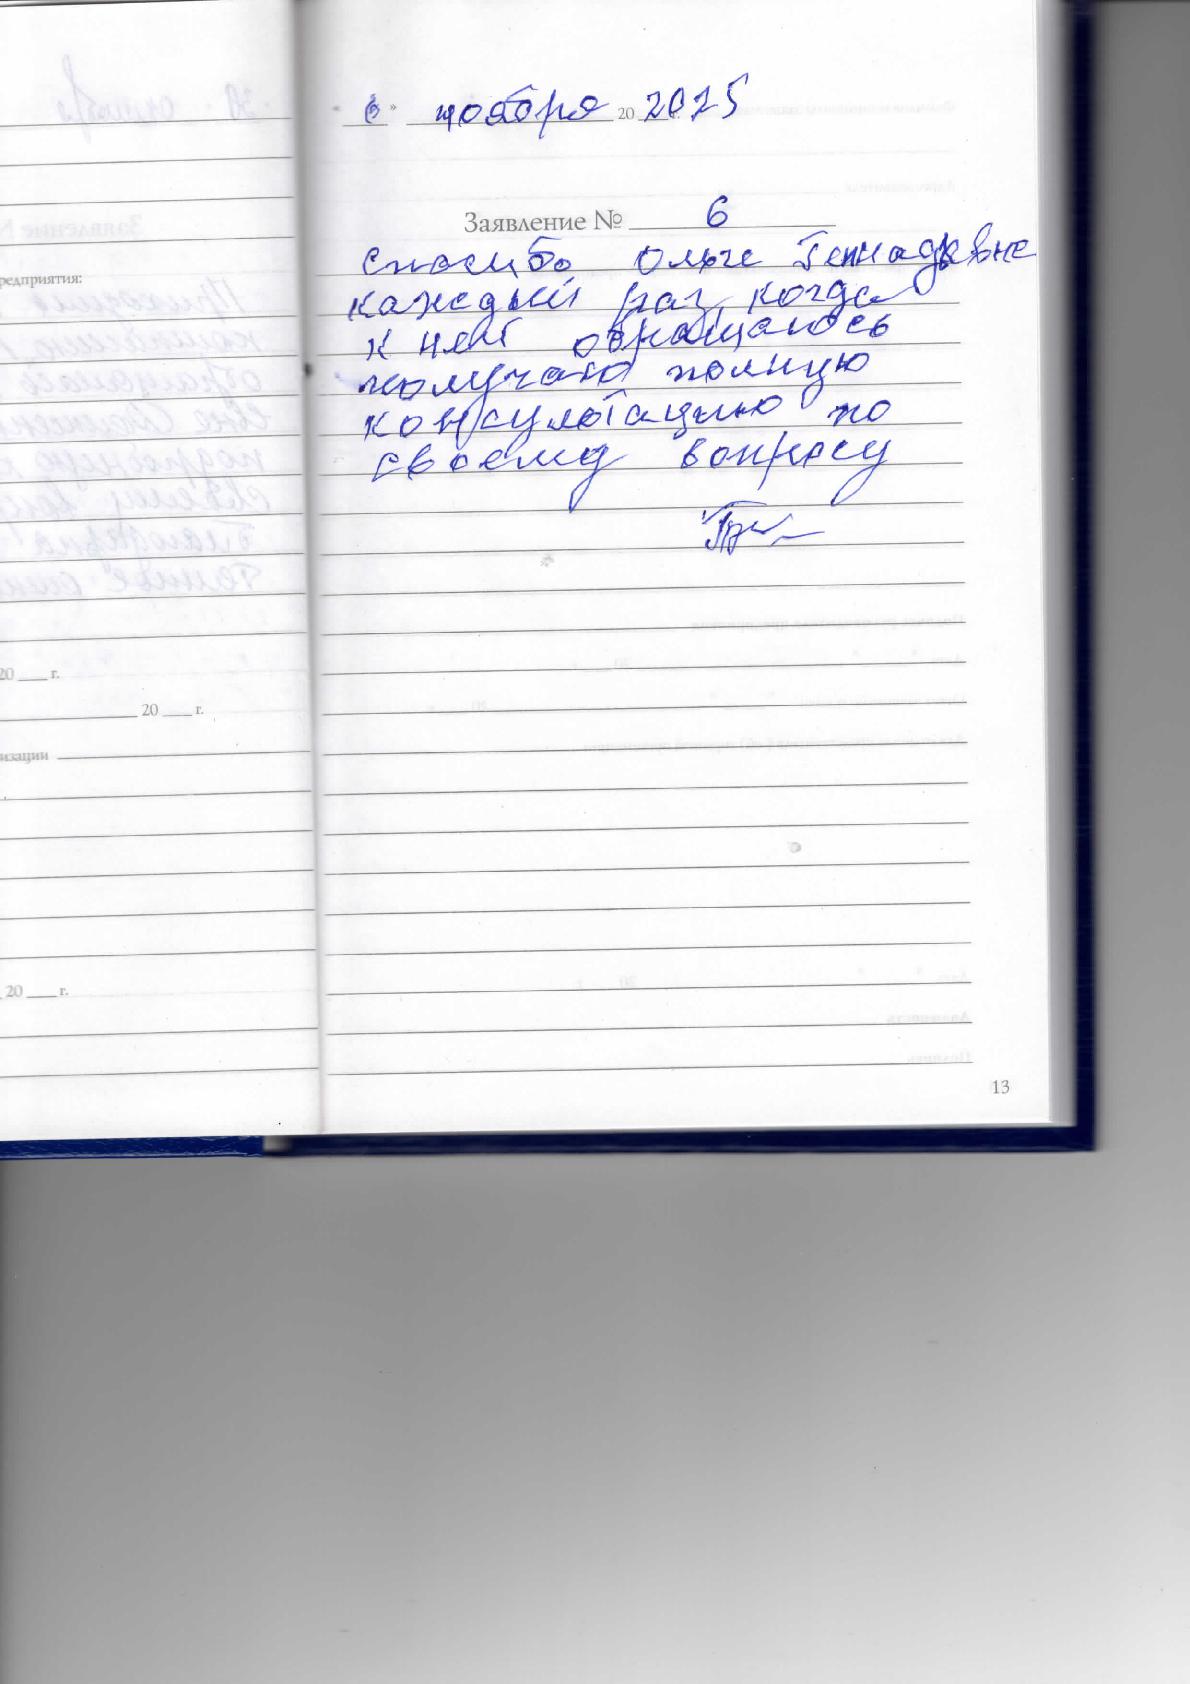 « 6 » ноября 20 2025
Заявление № 6
спасибо Ольге Геннадьевне
каждый раз когда
к ней обращаюсь
получаю полную
консультацию по
своему вопросу
редприятия:
20 ___ г.
20 ___ г.
изации
20 ___ г.
13